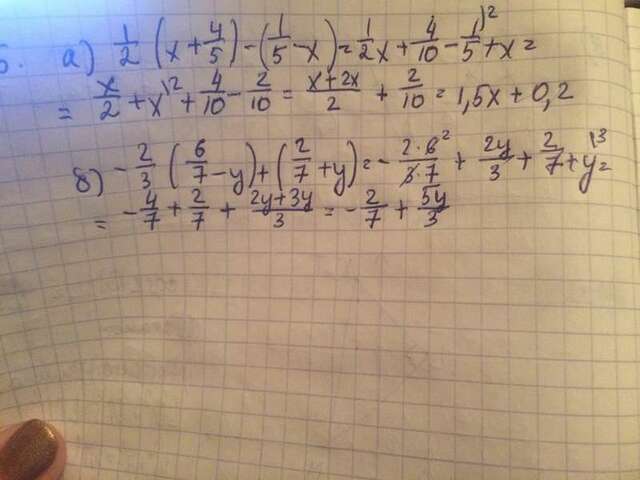 5. а) 1/2 (x + 4/5) - (1/5 - x) = 1/2 x + 4/10 - 1/5^{)2} + x =
= x/2 + x^{)2} + 4/10 - 2/10 = (x + 2x)/2 + 2/10 = 1,5x + 0,2
б) - 2/3 (6/7 - y) + (2/7 + y) = - (2·6^2)/(3·7) + 2y/3 + 2/7 + y^{)3} =
= - 4/7 + 2/7 + (2y + 3y)/3 = - 2/7 + 5y/3